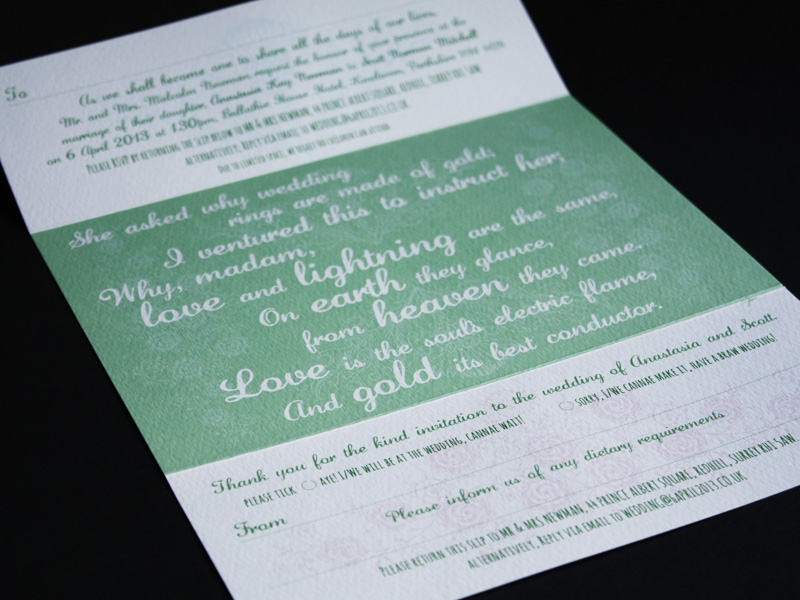 To
As we shall become one to share all the days of our lives,
Mr. and Mrs. Malcolm Newman request the honour of your presence at the
marriage of their daughter, Anastasia Kay Newman to Scott Norman Mitchell
on 6 April 2013 at 1.30pm, Ballathie House Hotel, Kinclaven, Perthshire
PLEASE RSVP BY RETURNING THE SLIP BELOW TO MR & MRS NEWMAN, 44 PRINCE ALBERT SQUARE, REDHILL, SURREY RH1 5AW
ALTERNATIVELY, REPLY VIA EMAIL TO WEDDING@6APRIL2013.CO.UK
DUE TO LIMITED SPACE, WE
She asked why wedding
rings are made of gold;
I ventured this to instruct her;
Why, madam,
love and lightning are the same,
On earth they glance,
from heaven they came.
Love is the soul's electric flame,
And gold its best conductor.
Thank you for the kind invitation to the wedding of Anastasia and Scott.
PLEASE TICK AYE! I/WE WILL BE AT THE WEDDING, CANNAE WAIT! SORRY, I/WE CANNAE MAKE IT, HAVE A BRAW WEDDING!
From
Please inform us of any dietary requirements
PLEASE RETURN THIS SLIP TO MR & MRS NEWMAN, 44 PRINCE ALBERT SQUARE, REDHILL, SURREY RH1 5AW
ALTERNATIVELY, REPLY VIA EMAIL TO WEDDING@6APRIL2013.CO.UK